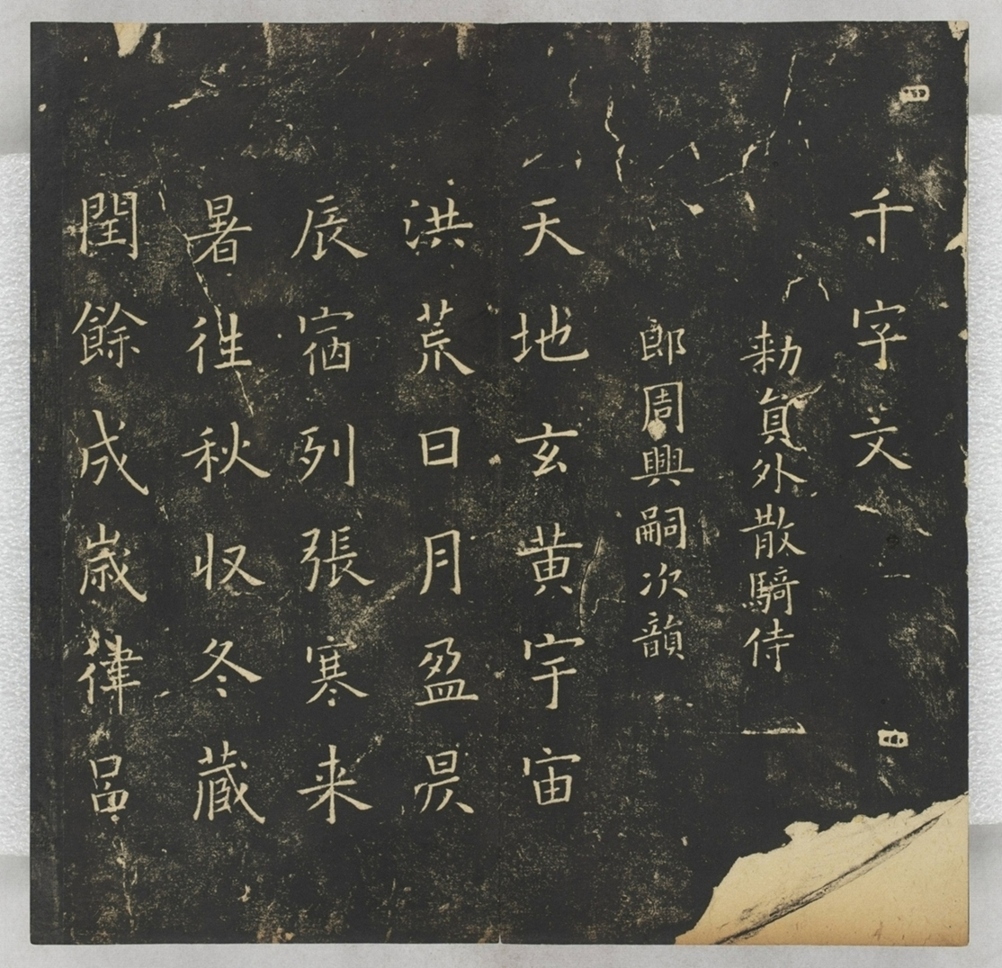 千字文
勑員外散騎侍
郎周興嗣次韻
天地玄黄宇宙
洪荒日月盈昃
辰宿列張寒来
暑往秋収冬蔵
閏餘成歳律吕